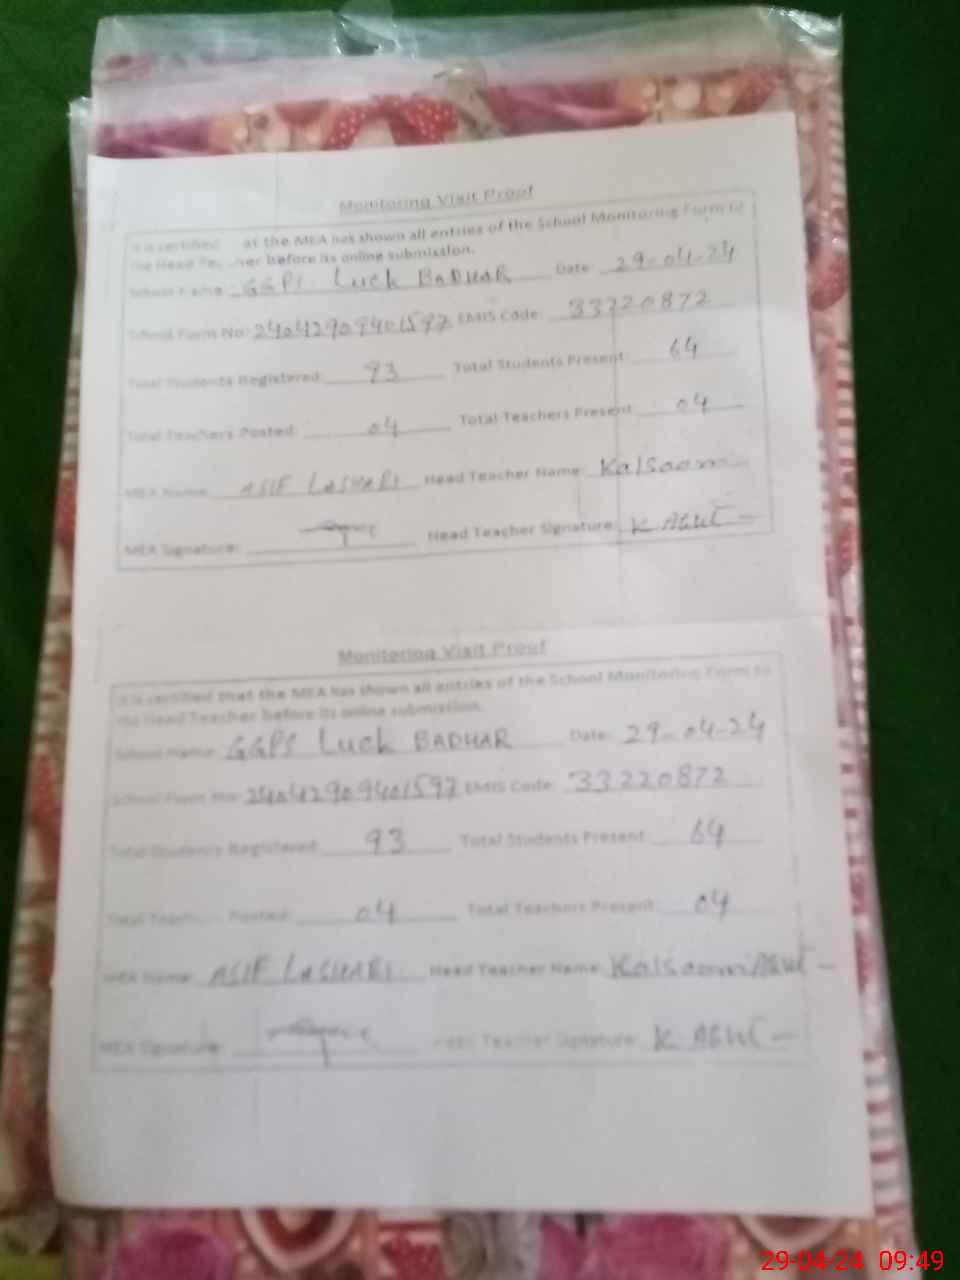 Monitoring Visit Proof
It is certified at the MEA has shown all entries of the School Monitoring Form to
the Head Teacher before its online submission.
School Name: GGPS Luck BADHAR Date: 29-04-24
School Form No: 24042909401597 EMIS Code: 33220872
Total Students Registered: 93 Total Students Present: 64
Total Teachers Posted: 04 Total Teachers Present: 04
MEA Name: ASIF LASHARI Head Teacher Name: Kalsoom
MEA Signature: Head Teacher Signature: K
Monitoring Visit Proof
It is certified that the MEA has shown all entries of the School Monitoring Form to
the Head Teacher before its online submission.
School Name: GGPS Luck BADHAR Date: 29-04-24
School Form No: 24042909401597 EMIS Code: 33220872
Total Students Registered: 93 Total Students Present: 64
Total Posted: 04 Total Teachers Present: 04
MEA Name: ASIF LASHARI Head Teacher Name: Kalsoom
MEA Signature: Head Teacher Signature: K
29-04-24 09:49